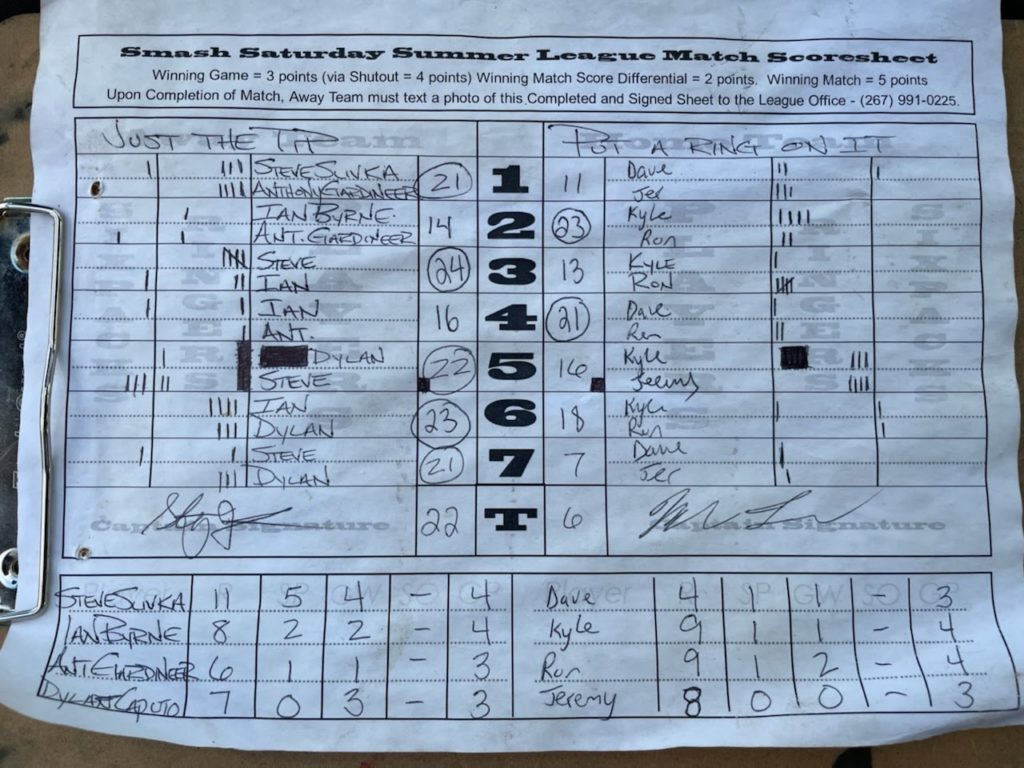 Smash Saturday Summer League Match Scoresheet
Winning Game = 3 points (via Shutout = 4 points) Winning Match Score Differential = 2 points. Winning Match = 5 points
Upon Completion of Match, Away Team must text a photo of this Completed and Signed Sheet to the League Office - (267) 991-0225.
JUST THE TIP PUT A RING ON IT
STEVE SLIVKA 21 1 11 Dave
ANTHONY GARDINEER Jer
IAN BYRNE 14 2 23 Kyle
ANT. GARDINEER Ron
STEVE 24 3 13 KYLE
IAN RON
IAN 16 4 21 Dave
ANT. Ron
DYLAN 22 5 16 Kyle
STEVE Jeremy
IAN 23 6 18 Kyle
DYLAN Ron
STEVE 21 7 7 Dave
DYLAN Jer
Captain Signature 22 T 6 Captain Signature
STEVE SLIVKA 11 5 4 - 4 Dave 4 1 1 - 3
IAN BYRNE 8 2 2 - 4 Kyle 9 1 1 - 4
ANT. GARDINEER 6 1 1 - 3 Ron 9 1 2 - 4
DYLAN CAPUTO 7 0 3 - 3 Jeremy 8 0 0 - 3